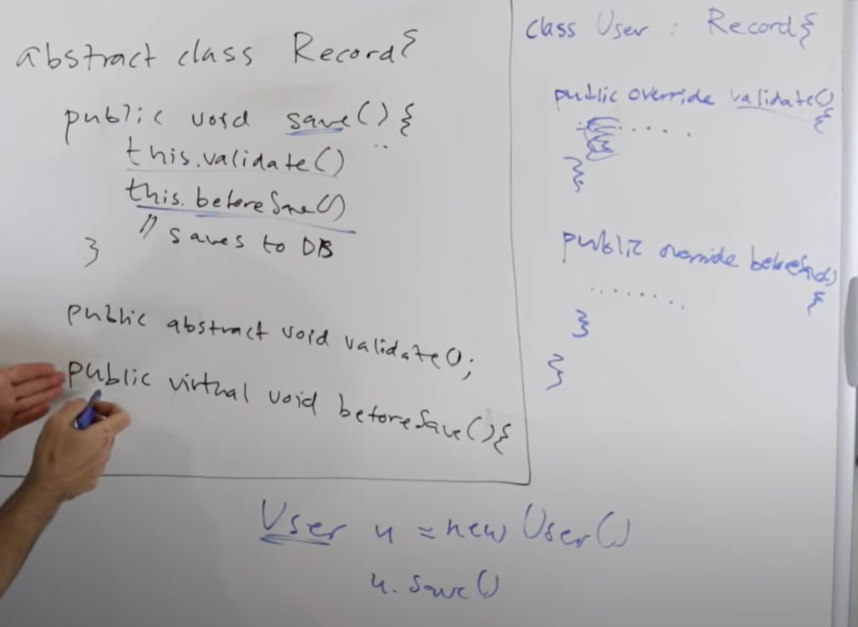 abstract class Record{
public void save(){
this.validate()
this.beforeSave()
// saves to DB
}
public abstract void validate();
public virtual void beforeSave(){
class User : Record{
public override validate()
{
. . . . .
}
public override beforeSave()
{
. . . . . . . .
}
}
User u = new User()
u.save()